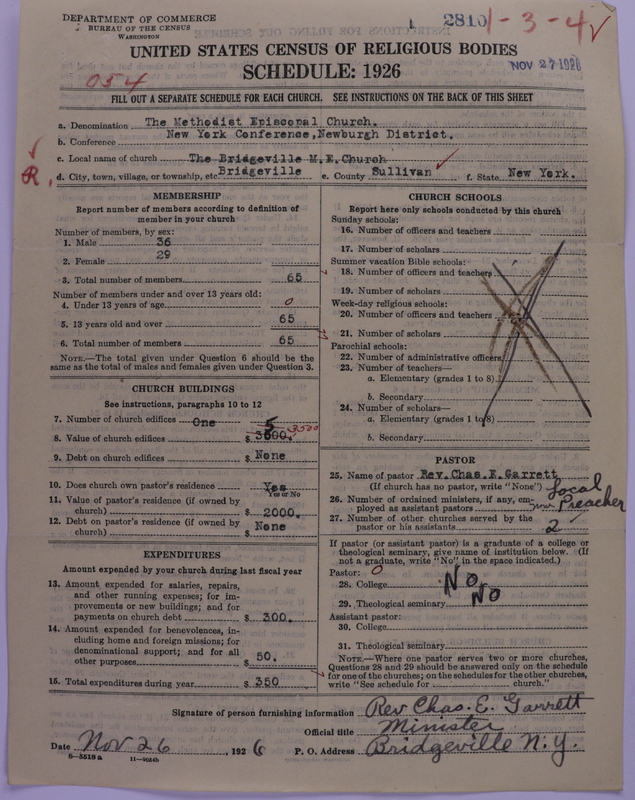 DEPARTMENT OF COMMERCE
BUREAU OF THE CENSUS
WASHINGTON
2810
1-3-4
NOV 27 1926
054
UNITED STATES CENSUS OF RELIGIOUS BODIES
SCHEDULE: 1926
FILL OUT A SEPARATE SCHEDULE FOR EACH CHURCH. SEE INSTRUCTIONS ON THE BACK OF THIS SHEET
a. Denomination The Methodist Episcopal Church.
b. Conference New York Conference, Newburgh District.
c. Local name of church The Bridgeville M.E. Church
R. d. City, town, village, or township, etc. Bridgeville e. County Sullivan f. State New York.
MEMBERSHIP
Report number of members according to definition of
member in your church
Number of members, by sex:
1. Male 36
2. Female 29
3. Total number of members 65
Number of members under and over 13 years old:
4. Under 13 years of age 0
5. 13 years old and over 65
6. Total number of members 65
NOTE.—The total given under Question 6 should be
same as the total of males and females given under Question 3.
CHURCH BUILDINGS
See instructions, paragraphs 10 to 12
7. Number of church edifices One
8. Value of church edifices $ 3500. 3500
9. Debt on church edifices $ None
10. Does church own pastor's residence? Yes
Yes or No
11. Value of pastor's residence (if owned by
church) $ 2000.
12. Debt on pastor's residence (if owned by
church) $ None
EXPENDITURES
Amount expended by your church during last fiscal year
13. Amount expended for salaries, repairs,
and other running expenses; for im-
provements or new buildings; and for
payments on church debt $ 300.
14. Amount expended for benevolences, in-
cluding home and foreign missions; for
denominational support; and for all
other purposes $ 50.
15. Total expenditures during year $ 350
CHURCH SCHOOLS
Report here only schools conducted by this church
Sunday schools:
16. Number of officers and teachers
17. Number of scholars
Summer vacation Bible schools:
18. Number of officers and teachers
19. Number of scholars
Week-day religious schools:
20. Number of officers and teachers
21. Number of scholars
Parochial schools:
22. Number of administrative officers
23. Number of teachers—
a. Elementary (grades 1 to 8)
b. Secondary
24. Number of scholars—
a. Elementary (grades 1 to 8)
b. Secondary
PASTOR
25. Name of pastor Rev. Chas. E. Garrett
(If church has no pastor, write "None")
26. Number of ordained ministers, if any, em-
ployed as assistant pastors Local Preacher
27. Number of other churches served by the
pastor or his assistants 2
If pastor (or assistant pastor) is a graduate of a college or
theological seminary, give name of institution below. (If
not a graduate, write "No" in the space indicated.)
Pastor: 0
28. College No
29. Theological seminary No
Assistant pastor:
30. College
31. Theological seminary
NOTE.—Where one pastor serves two or more churches,
Questions 28 and 29 should be answered only on the schedule
for one of the churches; on the schedules for the other churches,
write "See schedule for church."
Signature of person furnishing information Rev Chas. E. Garrett
Official title Minister
Date Nov 26, 1926 P. O. Address Bridgeville N.Y.
6-5518a 11-9024b